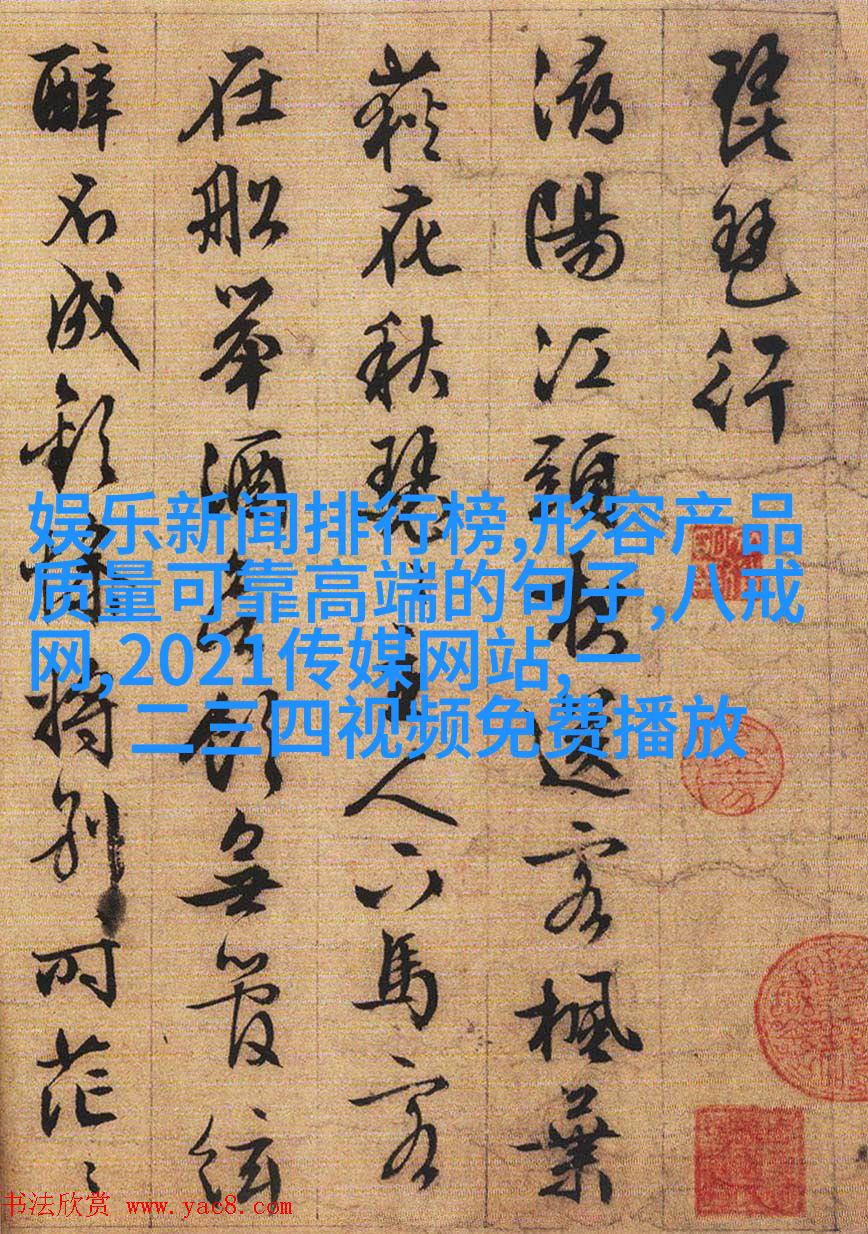 琵琶行
潯陽江頭夜送客楓葉
荻花秋瑟〻主人下馬客
在船舉酒欲飲無管絃
醉不成歡慘將別時茫〻
娱乐新闻排行榜,形容产品
质量可靠高端的句子,八戒
网,2021传媒网站,一
二三四视频免费播放
书法欣赏 www.yac8.com